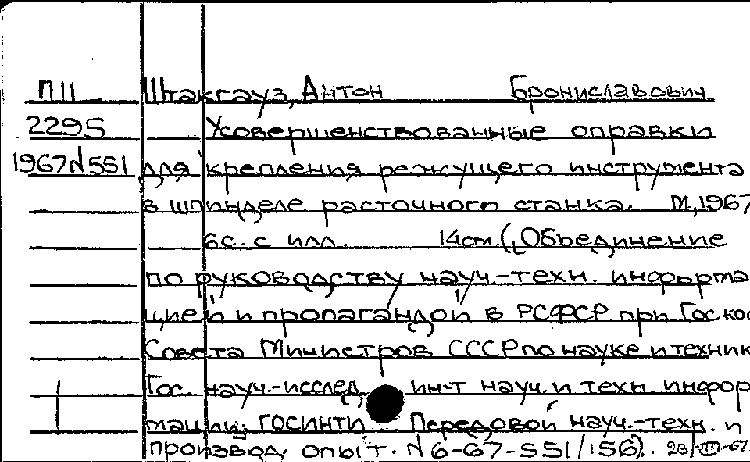 П11 Штакгауз, Антон Брониславович
2295 Усовершенствованные оправки
1967 N551 для крепления режущего инструмента
в шпинделе расточного станка. М, 1967
6с. с илл. 14см (Объединение
по руководству науч.-техн. информа
цией и пропагандой в РСФСР при Госко
Совета Министров СССР по науке и техник
Гос. науч.-исслед. ин-т науч. и техн. инфор
мации. ГОСИНТИ. Передовой науч.-техн. и
производ. опыт. N 6-67-551/156).